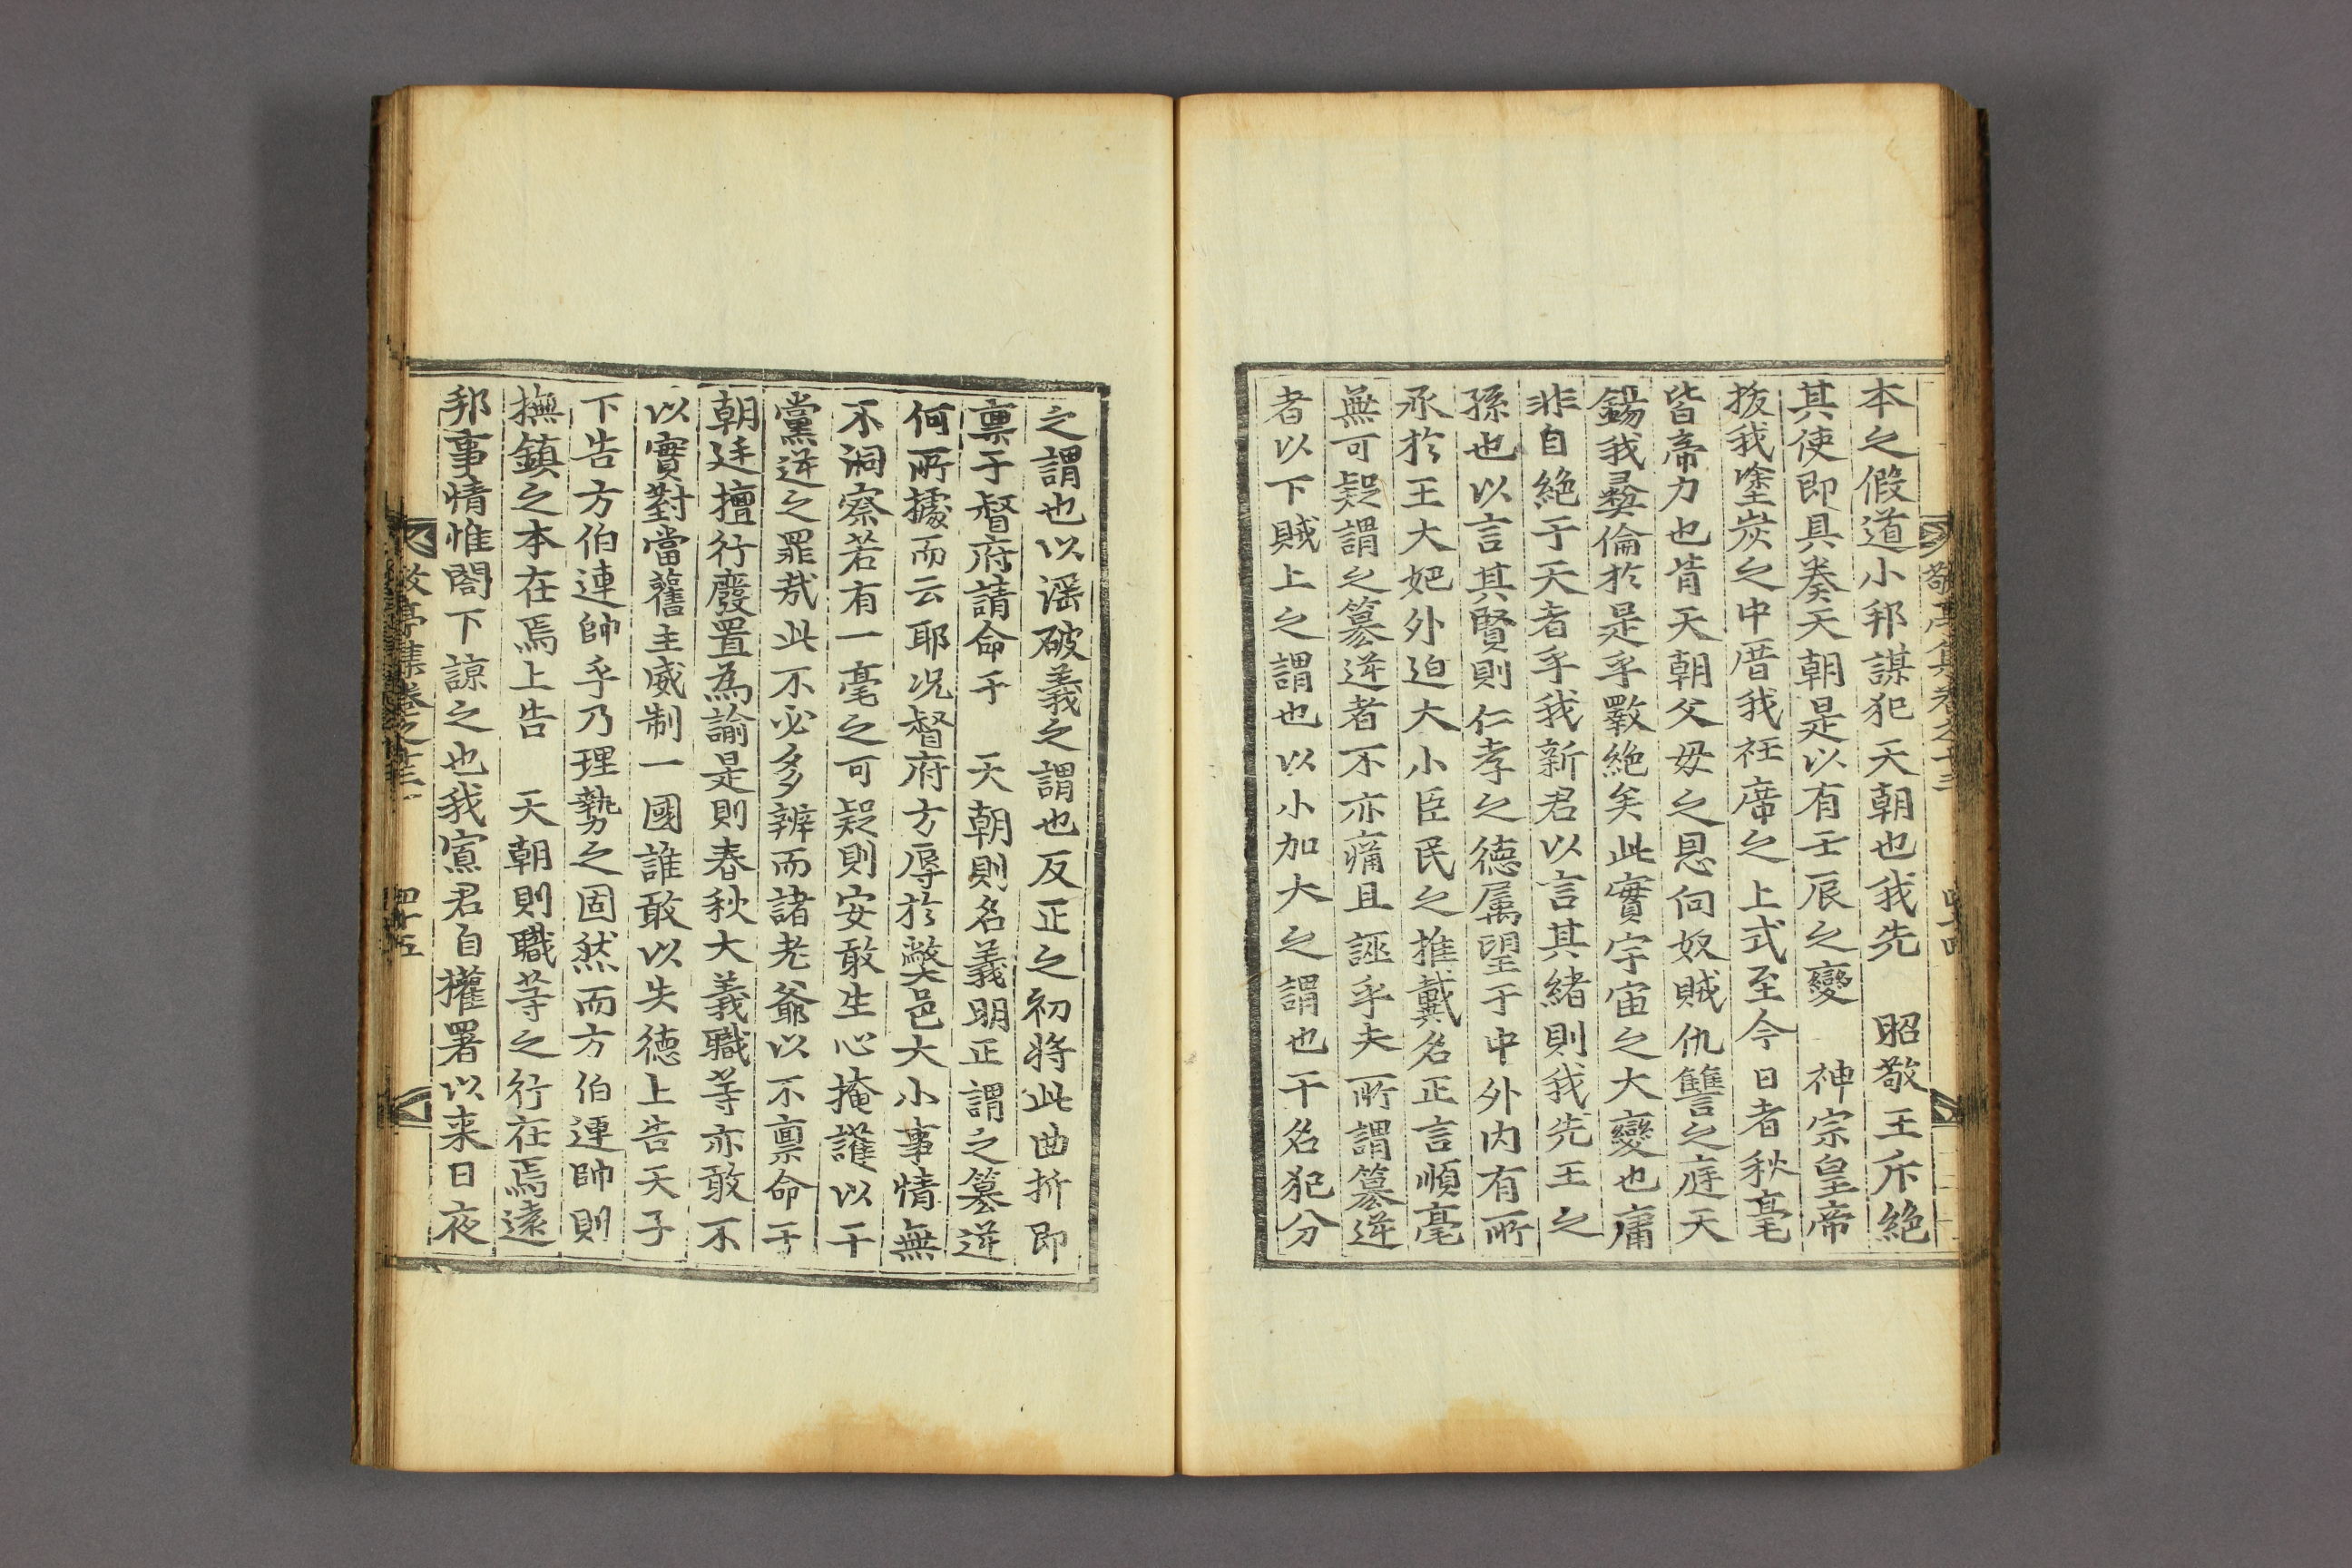 敬亭集卷之十三
本之假道小邦謀犯天朝也我先 昭敬王斥絶
其使即具奏天朝是以有壬辰之變 神宗皇帝
拔我塗炭之中厝我袵席之上式至今日者秋毫
皆帝力也背天朝父母之恩向奴賊仇讐之庭天
錫我彝倫於是乎斁絶矣此實宇宙之大變也庸
非自絶于天者乎我新君以言其緒則我先王之
孫也以言其賢則仁孝之德屬望于中外内有所
承於王大妃外迫大小臣民之推戴名正言順毫
無可疑謂之簒逆者不亦痛且誣乎夫所謂簒逆
者以下賊上之謂也以小加大之謂也干名犯分
之謂也以滛破義之謂也反正之初將此曲折即
禀于督府請命于 天朝則名義明正謂之簒逆
何所據而云耶况督府方辱於獘邑大小事情無
不洞察若有一毫之可疑則安敢生心掩護以干
黨逆之罪哉此不必多辨而諸老爺以不禀命于
朝廷擅行廢置爲諭是則春秋大義職等亦敢不
以實對當舊主威制一國誰敢以失德上告天子
下告方伯連帥乎乃理勢之固然而方伯連帥則
撫鎮之本在焉上告 天朝則職等之行在焉遠
邦事情惟閤下諒之也我寡君自權署以来日夜
敬亭集卷之十三
四十五